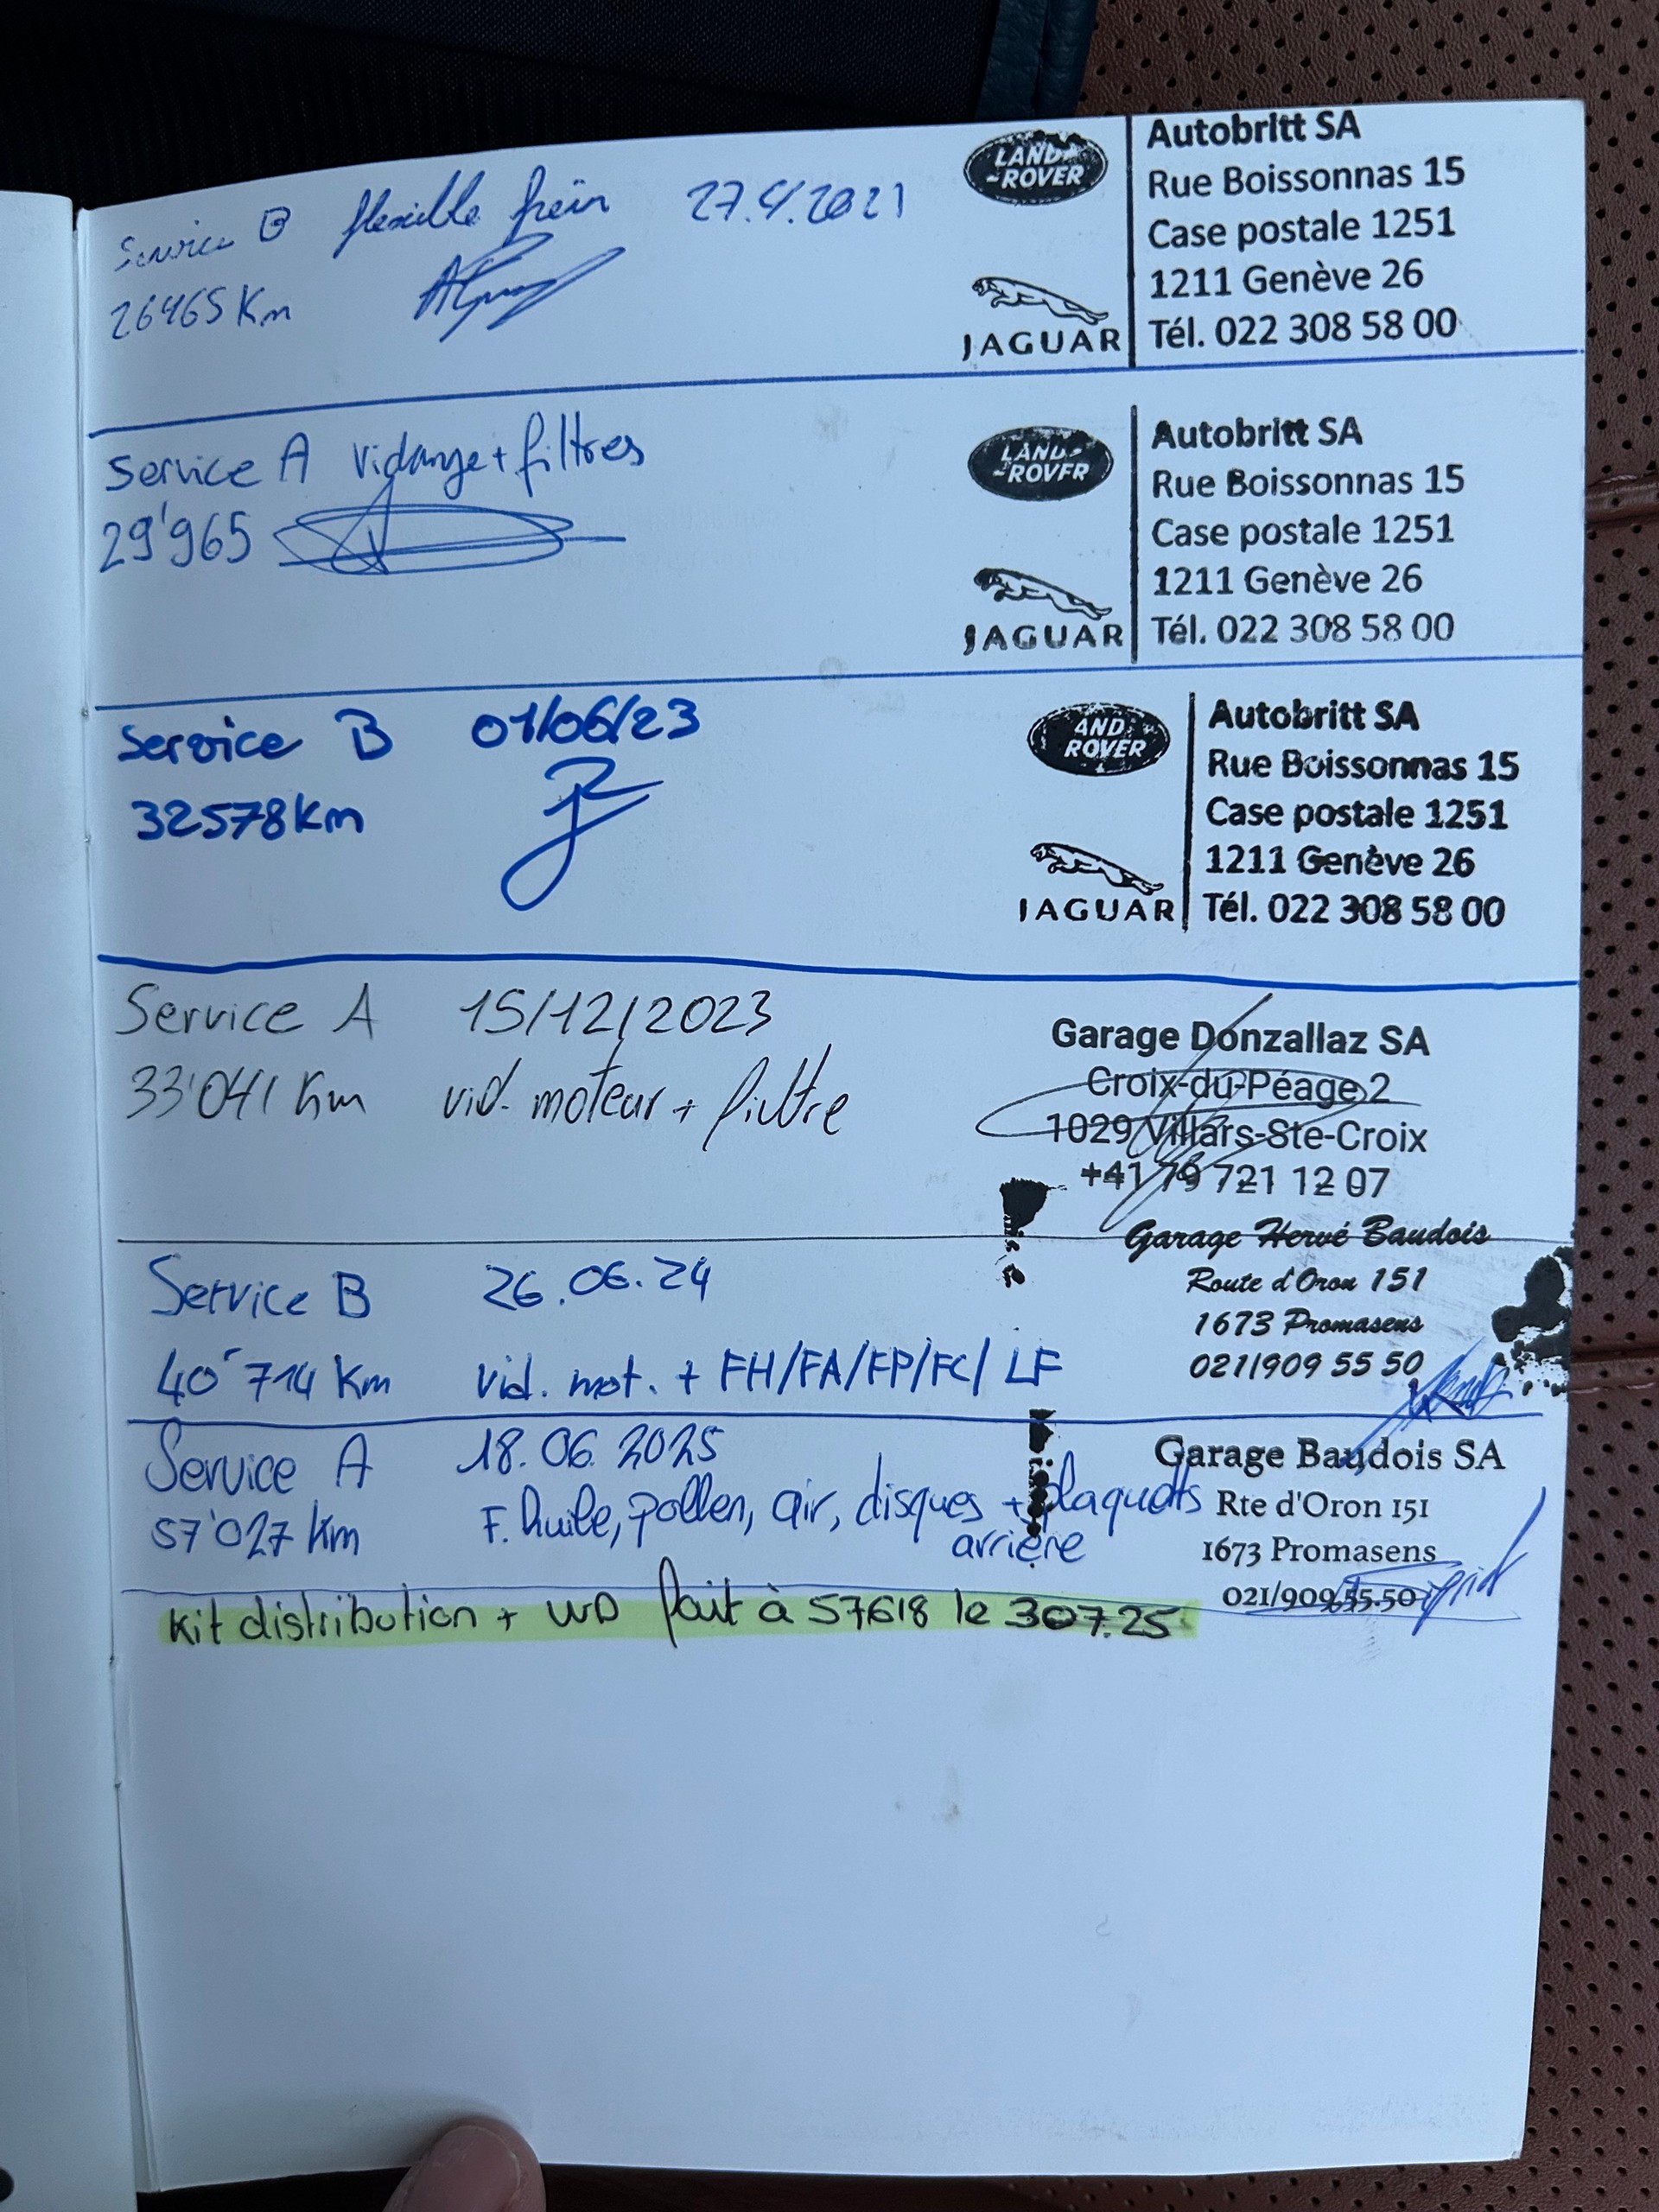 Service B flexible frein 27.4.2021
26465 Km
LAND ROVER
JAGUAR
Autobritt SA
Rue Boissonnas 15
Case postale 1251
1211 Genève 26
Tél. 022 308 58 00
Service A Vidange + filtres
29'965
LAND ROVER
JAGUAR
Autobritt SA
Rue Boissonnas 15
Case postale 1251
1211 Genève 26
Tél. 022 308 58 00
Service B 01/06/23
32578 Km
LAND ROVER
JAGUAR
Autobritt SA
Rue Boissonnas 15
Case postale 1251
1211 Genève 26
Tél. 022 308 58 00
Service A 15/12/2023
33'041 Km vid. moteur + filtre
Garage Donzallaz SA
Croix-du-Péage 2
1029 Villars-Ste-Croix
+41 79 721 12 07
Service B 26.06.24
40'714 Km vid. mot. + FH/FA/FP/FC/ LF
Garage Hervé Baudois
Route d'Oron 151
1673 Promasens
021/909 55 50
Service A 18.06.2025
57'027 Km F. huile, pollen, air, disques + plaquetts
arrière
Garage Baudois SA
Rte d'Oron 151
1673 Promasens
021/909.55.50
Kit distribution + WD fait à 57618 le 307.25